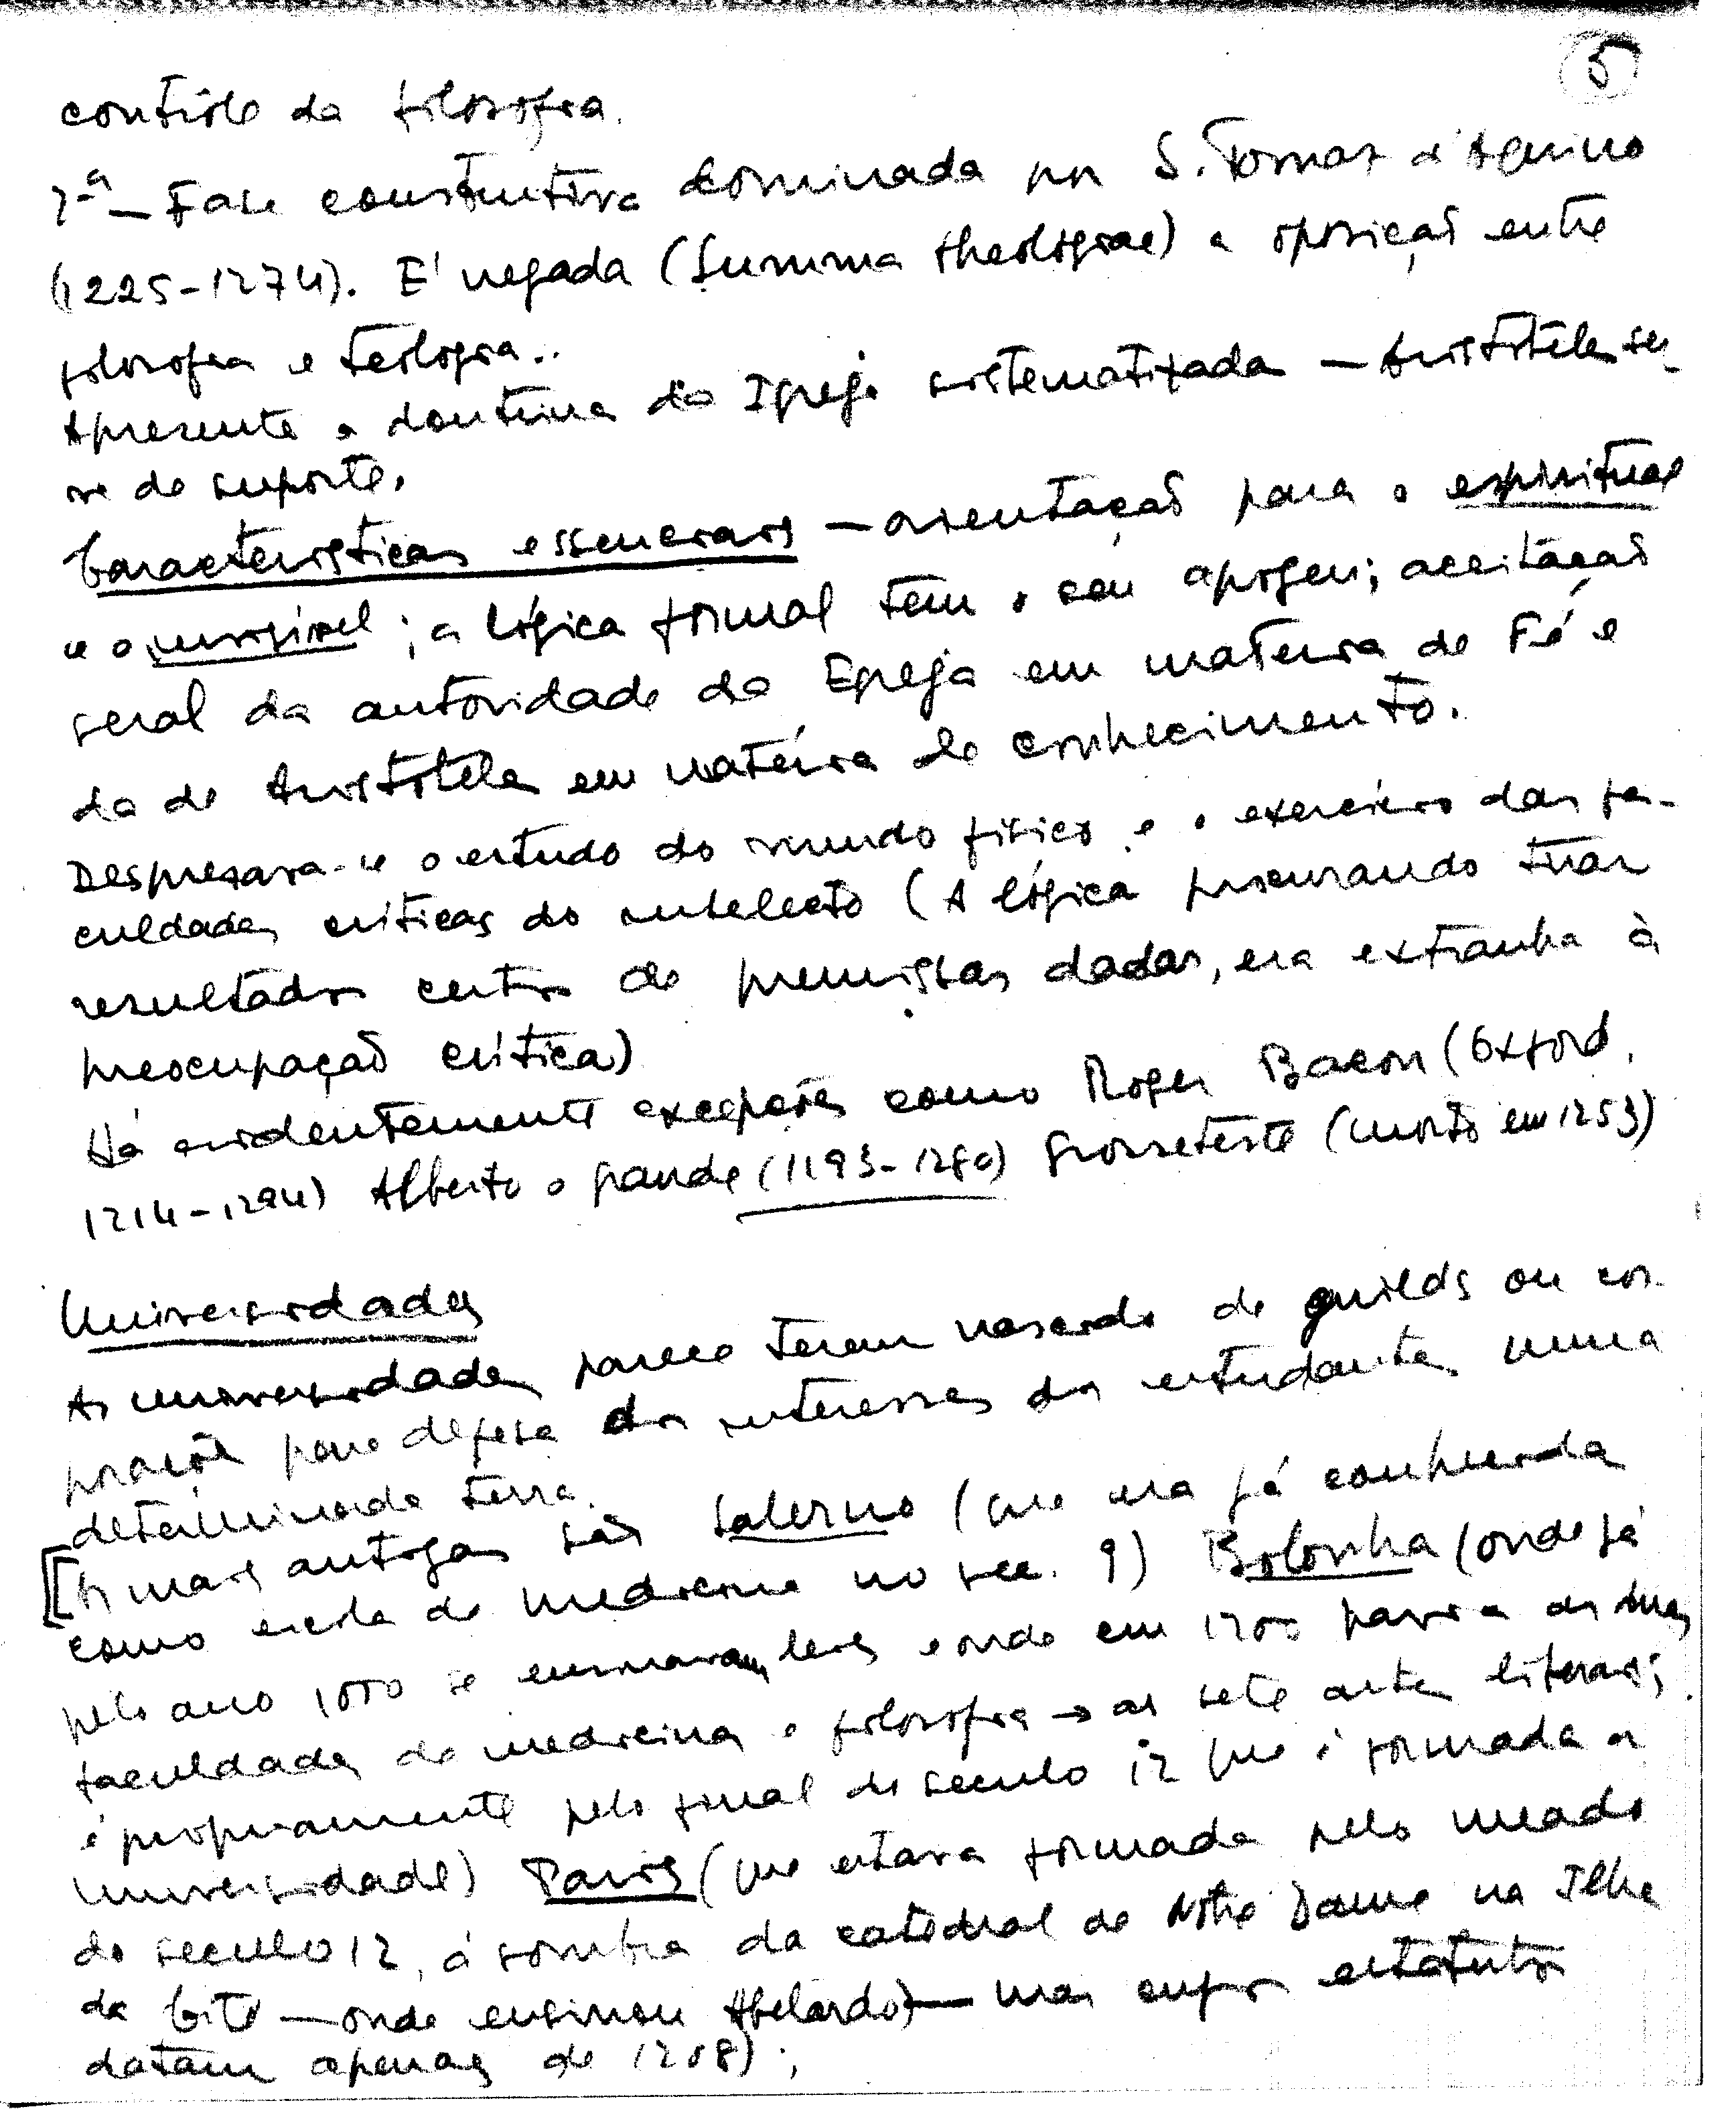 5
contrôle da filosofia.
2ª — Fase construtiva dominada por S. Tomaz d'Aquino
(1225-1274). E' negada (Summa theologiae) a oposição entre
filosofia e teologia..
Apresenta a doutrina da Igreja sistematizada — Aristóteles ser-
ve de suporte.
Características essenciais — orientação para o espiritual
e o invisível; a lógica formal tem o seu apogeu; aceitação
geral da autoridade da Egreja em materia de Fé e
da de Aristóteles em matéria de conhecimento.
Despresava-se o estudo do mundo físico e o exercício das fa-
culdades críticas do intelecto (A lógica procurando tirar
resultados certos de premissas dadas, era extranha à
preocupação crítica)
Há evidentemente excepções como Roger Bacon (Oxford,
1214-1294) Alberto o grande (1193-1280) Grosseteste (morto em 1253)
Universidades
As universidades parece terem nascido de guilds ou cor-
porações para defesa dos interesses dos estudantes numa
determinada terra.
[As mais antigas são Salerno (que era já conhecida
como escola de medicina no sec. 9) Bolonha (onde já
pelo ano 1000 se ensinavam leis e onde em 1200 havia as duas
faculdades de medicina e filosofia → as sete artes liberais;
é propriamente pelo final do seculo 12 que é formada a
Universidade) Paris (que estava formada pelo meado
do seculo 12, á sombra da catedral de Notre Dame na Ilha
da Cité — onde ensinou Abelardo) — mas cujos estatutos
datam apenas de 1208);